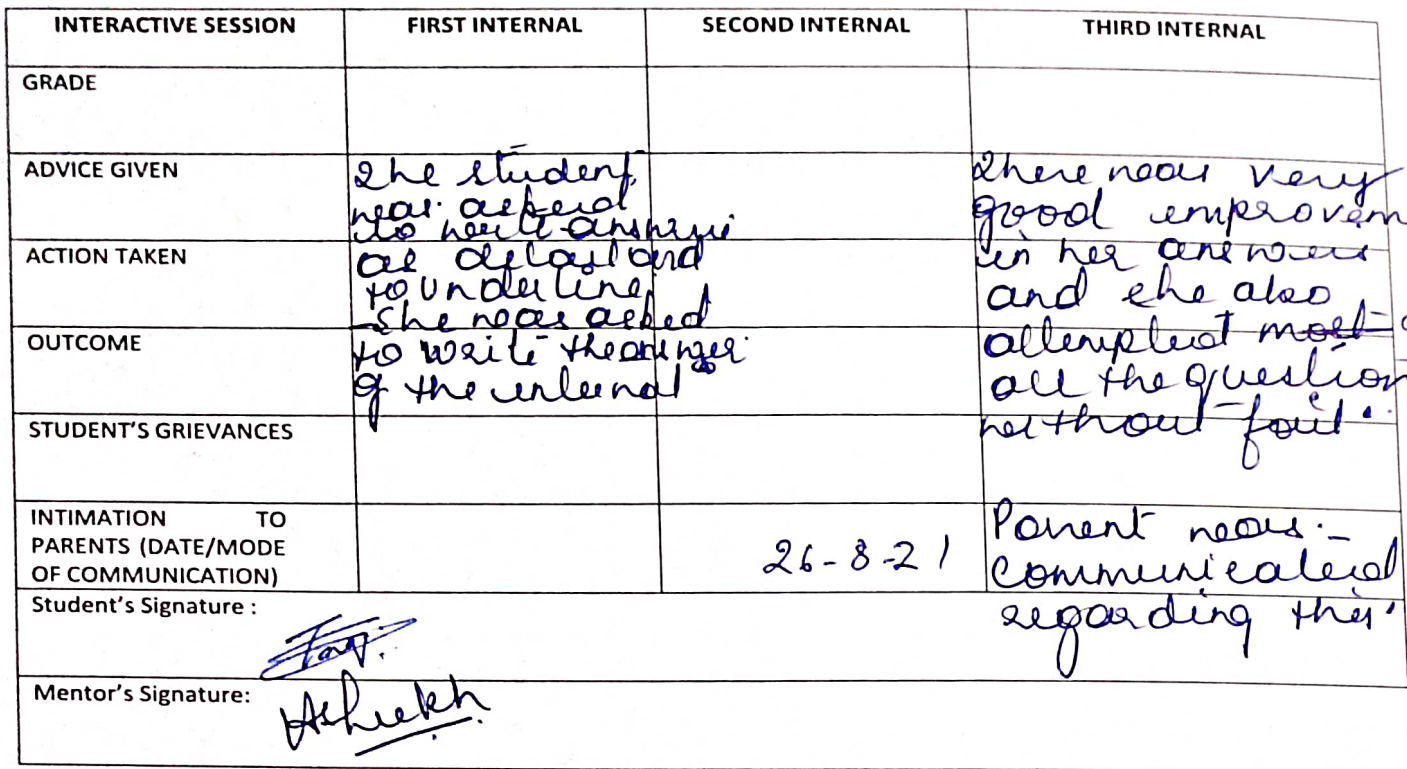 INTERACTIVE SESSION FIRST INTERNAL SECOND INTERNAL THIRD INTERNAL
GRADE
ADVICE GIVEN
The student
was asked
to write answers
as detail and
to underline
She was asked
to write the answer
of the internal
There was very
good improvem
in her answers
and she also
attempted most
all the question
without fail.
ACTION TAKEN
OUTCOME
STUDENT'S GRIEVANCES
INTIMATION TO
PARENTS (DATE/MODE
OF COMMUNICATION)
26-8-21
Parent was
communicated
regarding this.
Student's Signature :
Mentor's Signature: